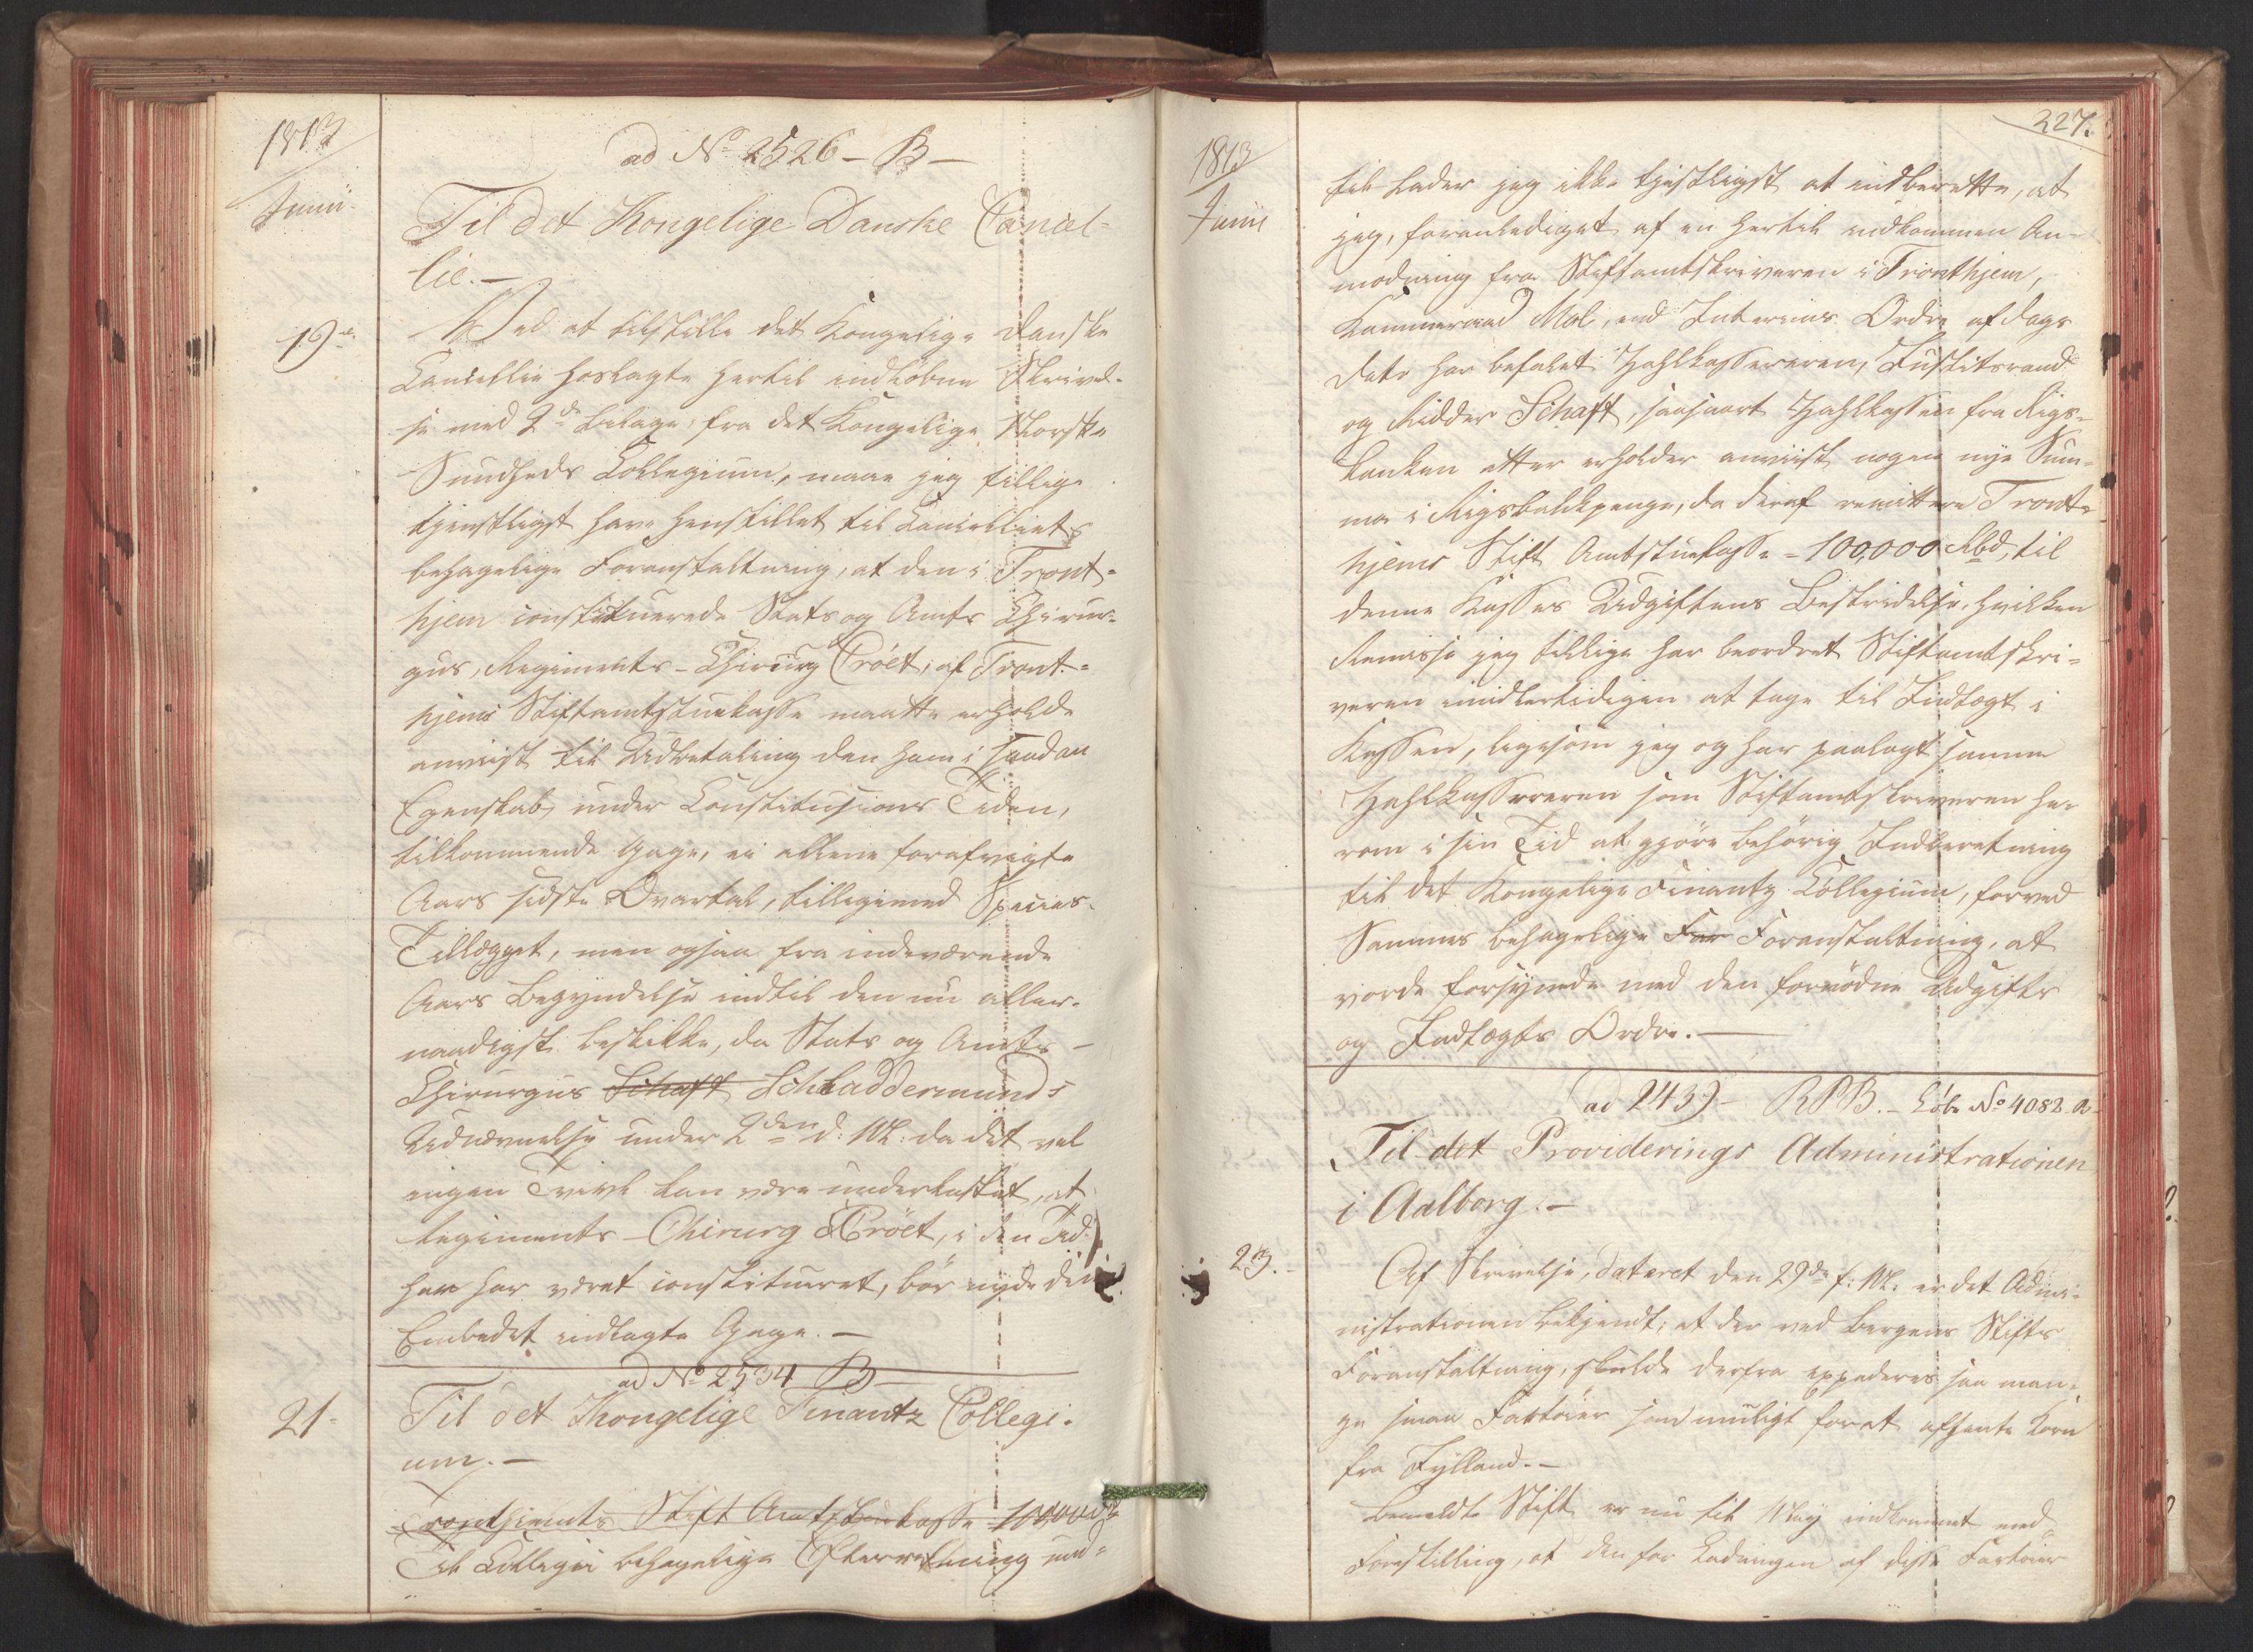 1813
Junii
ad No 2526 - B -
Til det Kongelige Danske Cancel-
lie. -
19de
Ved at tilstille det Kongelige Danske
Cancellie hoslagte hertil indløbne Skrivel-
se med 2de Bilage, fra det Kongelige Norske
Sundheds Collegium, maae jeg tillige
tjenstligst have henstillet til Cancelliets
behagelige Foranstaltning, at den i Tront-
hjem constituerede Stats og Amts Chirur-
gus, Regiments-Chirurg Cröet, af Tront-
hjems Stiftamtstuekasse maatte erholde
anviist til Udbetaling den ham i saadan
Egenskab, under Constitusions Tiden,
tilkommende Gage, ei allene forafvigte
Aars sidste Qvartal, tilligemed Species-
Tillægget, men ogsaa fra indeværende
Aars Begyndelse indtil den nu aller-
naadigst beskikkede Stats og Amts-
Chirurgus Schaft Schladdermunds
Udnævnelse under 2den d: M: da det vel
ingen Tvivl kan være underkastet, at
Regiments-Chirurg Cröet, i den Tid
han har været constitueret, bör nyde den
Embedet indlagte Gage. -
ad No 2534 B -
21-
Til det Kongelige Finantz Collegi-
um. -
Trontshiemts Stift Amtstuekasse 100000
Til Collegii behagelige Efterretning und-
227.
1813
Junii
lader jeg ikke tjenstligst at indberette, at
jeg, foranlediget af en hertil indkommen An-
modning fra Stiftamtskriveren i Tronthjem,
Kammeraad Mol, ved Interims Ordre af Dags
Dato har befalet Zahlkassereren, Justitsraad
og Ridder Schaft, saasnart Zahlkassen fra Rigs-
banken atter erholder anviist nogen nye Sum-
ma i Rigsbankpenge, da deraf remittere Tront-
hjems Stift Amtstuekasse - 100,000 Rbd, til
denne Kasses Udgiftens Bestridelse, hvilken
Remisse jeg tillige har beordret Stiftamtskri-
veren imidlertidigen at tage til Indtægt i
Kassen, ligesom jeg og har paalagt samme
Zahlkassereren som Stiftamtskriveren he-
rom i sin Tid at gjöre behörig Indberetning
til det Kongelige Finantz Collegium, forved
Sammes behagelige For Foranstaltning, at
vorde forsynede med den fornödne Udgifts
og Indtægts Ordre. -
ad 2439 - RPB. - Löbe No 4082. a-
Til det Providerings Administrationen
i Aalborg. -
23.
Af Skrivelse, dateret den 29de f: M. er det Admi-
nistrationen bekjendt, at der ved Bergens Stifts
Foranstaltning, skulde derfra expederes saa man-
ge smaa Fartöier som muligt for at afhente Korn
fra Jylland. -
Bemeldte Stift er nu til mig indkommet med
Forestilling, at den for Ladningen af disse Fartöier